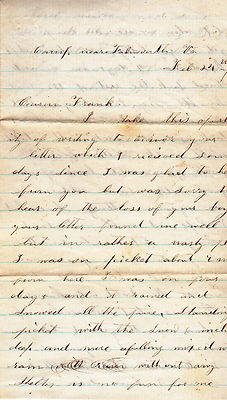 Camp, near Falmouth Va
Feb 24
Cousin Frank
I take this
ity of writing to answer your
letter which I recieved some
days since I was glad to he
from you but was sorry t
hear of the loss of your boy
your letter found me well
but in rather a nasty pl
I was on picket about
from here I was on four
days and it rained and
snowed all the time, Standing
picket with the snow
deep and more
rain without any
Shelter is no fun for me